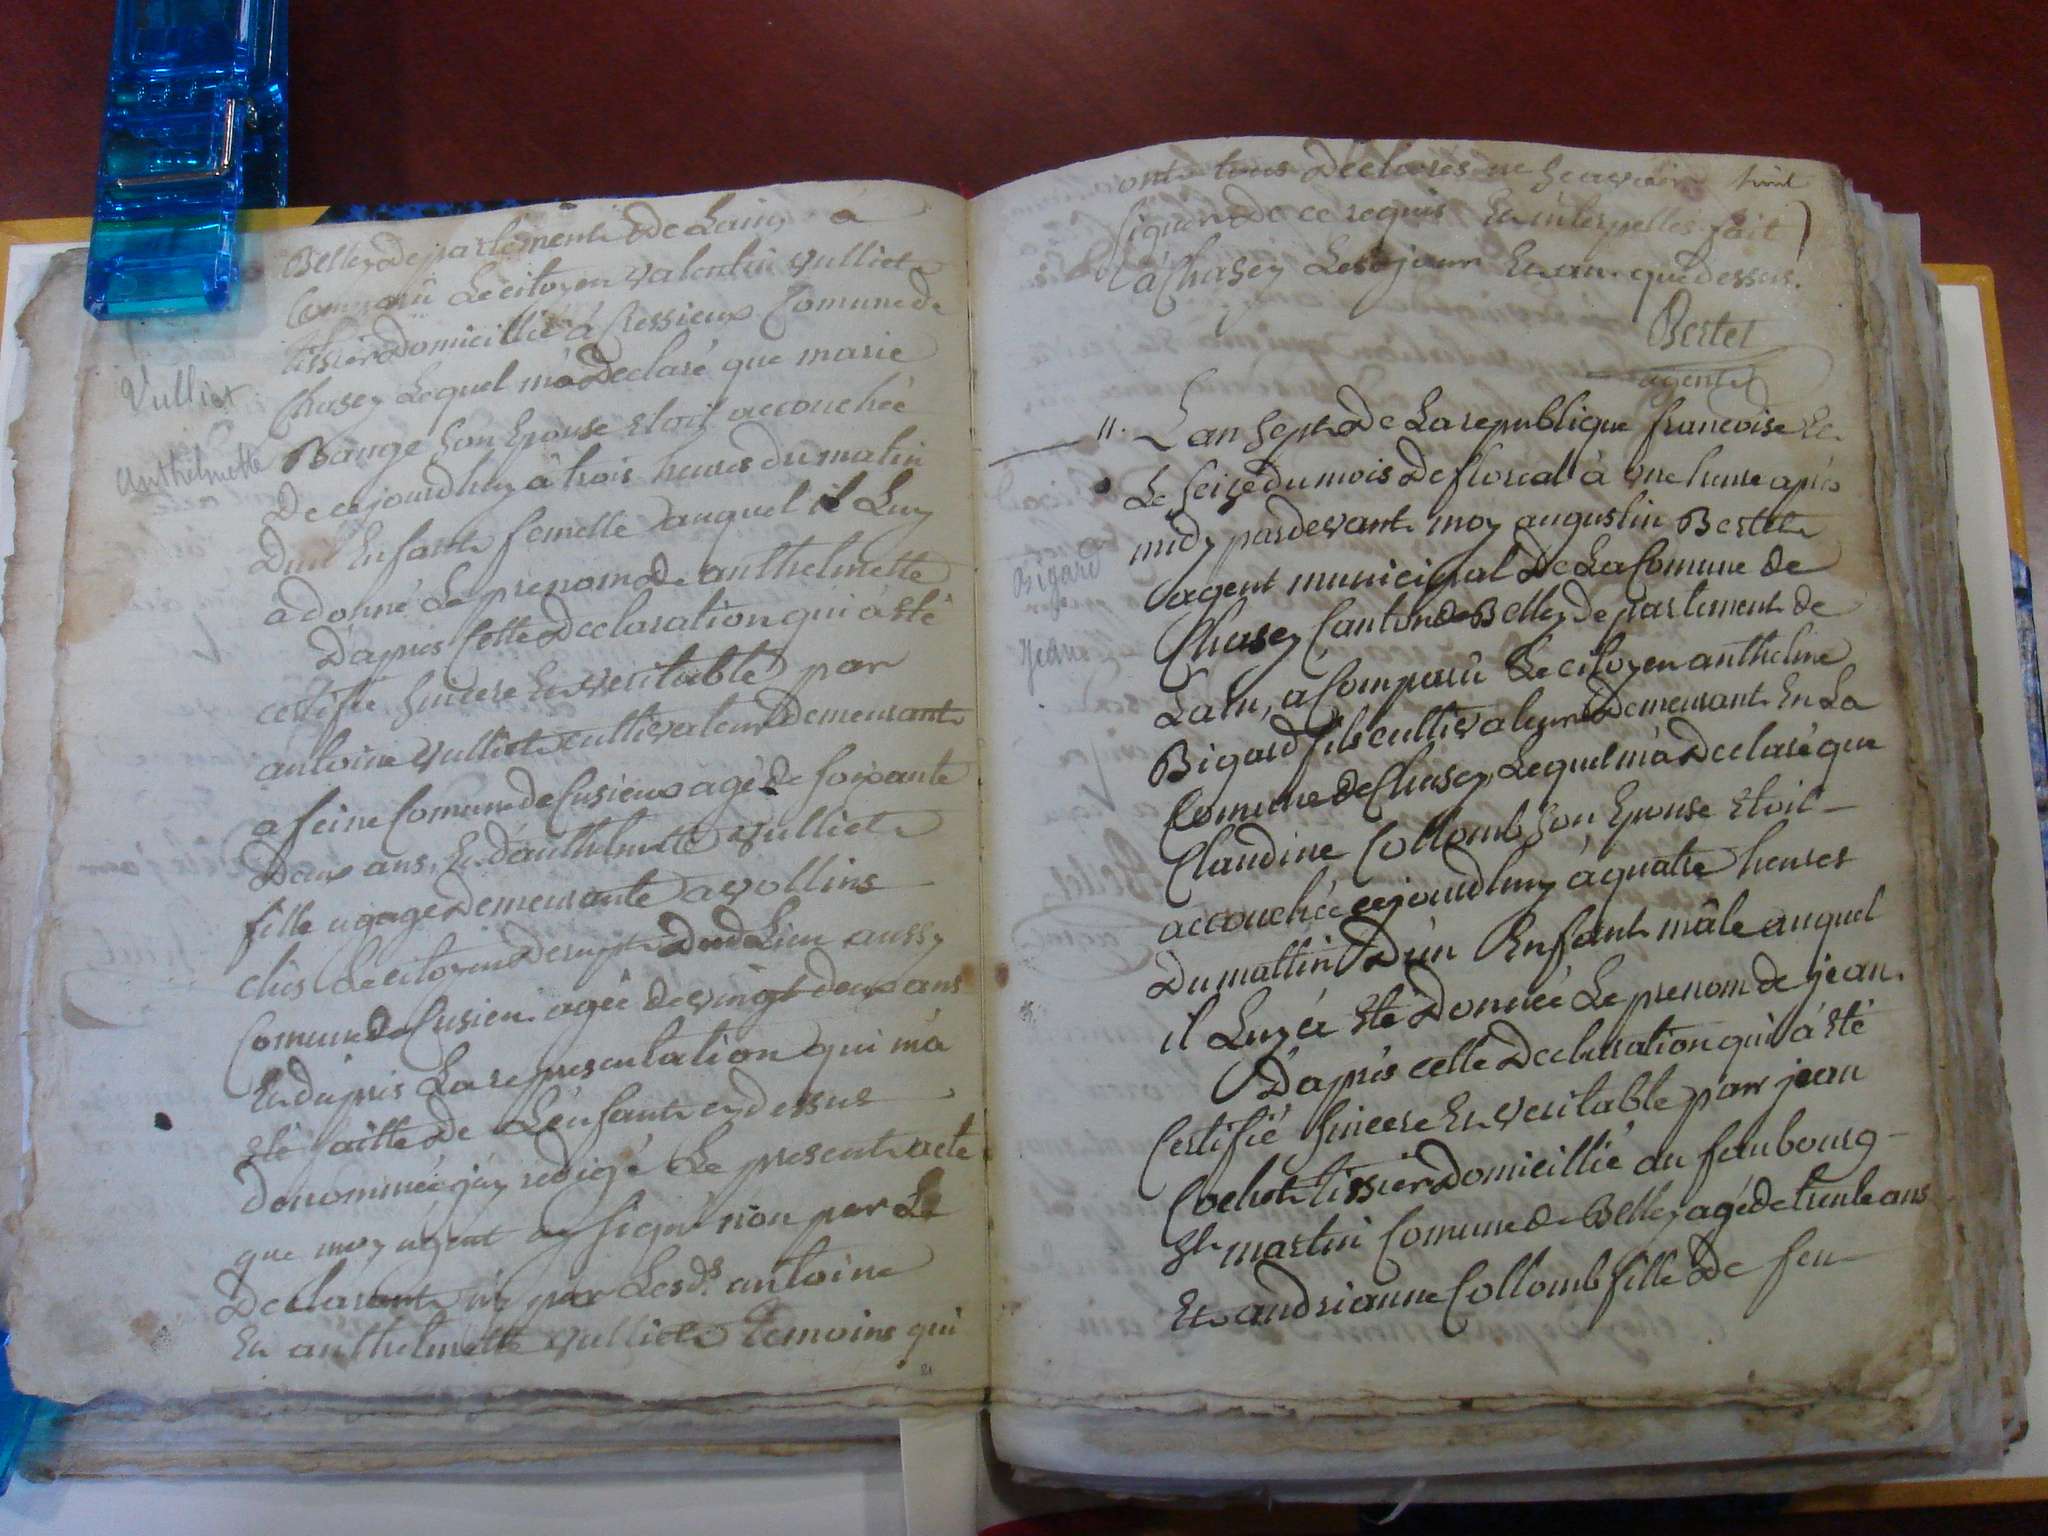 Belley departement de Lain, a
Comparu Le citoyen valentin vulliet
tissier domicillié à Cressieux Comune de
Chasey Lequel m'a declaré que marie
Bauge son Epouse etoit accouchée
De cejourdhuy à trois heures du matin
Dun Enfant femelle auquel il Luy
a donné Le prenom de anthelmette
D'apres Cette declaration qui a eté
certifié sincere Et veritable par
antoine vulliet cultivateur demeurant
a seine Comune de Cusieux agé de soixante
Deux ans, Et d'anthelmette vulliet
fille a gage demeurante a vollins
ches Le citoyen dud Lieu aussy
Comune de Cusieu agée de vingt deux ans
Et d'apres La representation qui m'a
eté faitte de L'enfant cydessus
denommée j'ay redigé Le present acte
que moy agent ay signé non par Le
Declarant ny par Lesds. antoine
Et anthelmette vulliet temoins qui
Vulliet
Anthelmette
ont tous declarés ne scavoir
signer de ce requis Et interpellés fait
à Chasey Les jour Et an que dessus.
Bertet
agent
11. L'an sept de La republique francoise Et
Le seize du mois de floreal à une heure après
midy pardevant moy augustin Bertet
agent municipal de La Comune de
Chasey Canton de Belley departement de
Lain, a Comparu Le citoyen anthelme
Bigard fils cultivateur demeurant En La
Comune de Chasey, Lequel m'a declaré que
Claudine Collomb son Epouse etoit
accouchée cejourdhuy à quatre heures
Du mattin D'un Enfant mâle auquel
il Luy a eté donnée Le prenom de jean.
D'après celle declaration qui à eté
Certifié sincere Et veritable par jean
Cochet tissier domicillié au faubourg
St martin Comune de Belley agé de trente ans
Et andrianne Collomb fille de feu
Bigard
Jean